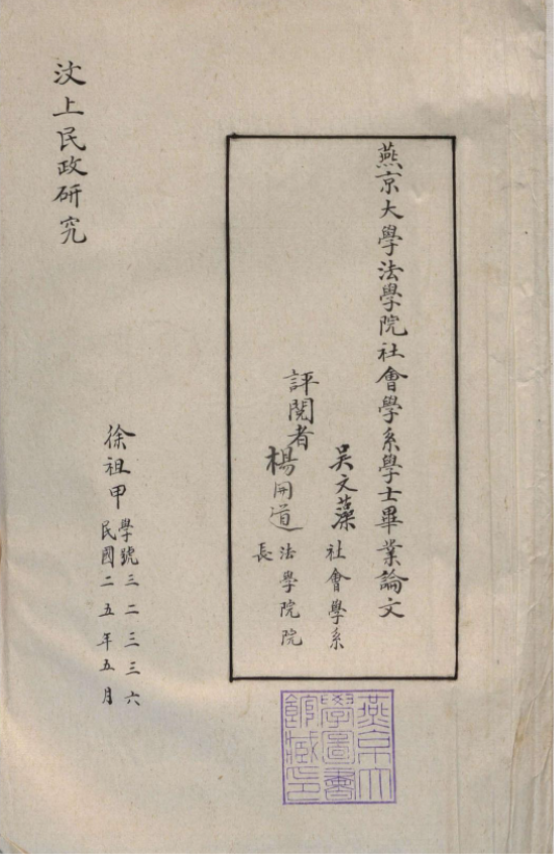 燕京大學法學院社會學系學士畢業論文
評閱者
吳文藻 社會學系
楊開道 法學院院長
燕京大學圖書館藏印
汶上民政研究
徐祖甲
學號三二三三六
民國二五年五月